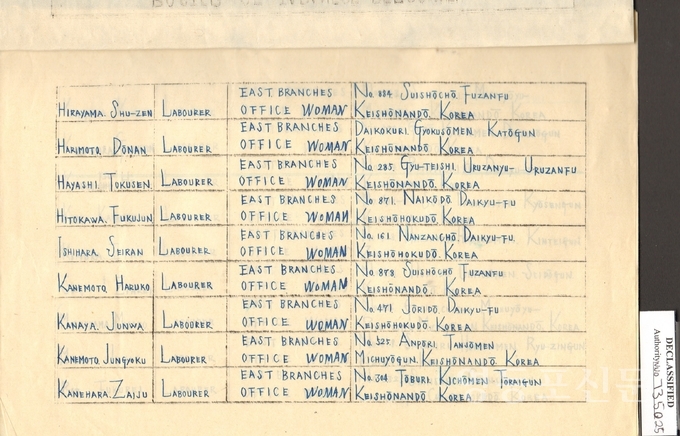 HIRAYAMA. SHU-ZEN LABOURER EAST BRANCHES OFFICE WOMAN No. 884 SUISHŌCHŌ. FUZANFU KEISHŌNANDŌ. KOREA
HARIMOTO. DŌNAN LABOURER EAST BRANCHES OFFICE WOMAN DAIKOKURI. GYOKUSŌMEN. KATŌGUN KEISHŌNANDŌ. KOREA
HAYASHI. TOKUSEN LABOURER EAST BRANCHES OFFICE WOMAN No. 285. GYU-TEISHI. URUZANYU- URUZANFU KEISHŌNANDŌ. KOREA
HITOKAWA. FUKUJUN LABOURER EAST BRANCHES OFFICE WOMAN No 871. NAIKŌDŌ. DAIKYU-FU KEISHŌHOKUDŌ. KOREA
ISHIHARA. SEIRAN LABOURER EAST BRANCHES OFFICE WOMAN No. 161. NANZANCHŌ. DAIKYU-FU. KEISHŌHOKUDŌ. KOREA
KANEMOTO. HARUKO LABOURER EAST BRANCHES OFFICE WOMAN No. 878. SUISHŌCHŌ FUZANFU KEISHŌNANDŌ. KOREA
KANAYA. JUNWA LABOURER EAST BRANCHES OFFICE WOMAN No. 471. JŌRIDŌ. DAIKYU-FU KEISHŌHOKUDŌ. KOREA
KANEMOTO. JUNGYOKU LABOURER EAST BRANCHES OFFICE WOMAN No. 325. ANPŌRI. TANJŌMEN MICHUYŌGUN. KEISHŌNANDŌ. KOREA
KANEHARA. ZAIJU LABOURER EAST BRANCHES OFFICE WOMAN No. 304. TŌBURI. KICHŌMEN. TŌRAIGUN KEISHŌNANDŌ. KOREA
DECLASSIFIED
Authority NND 735025